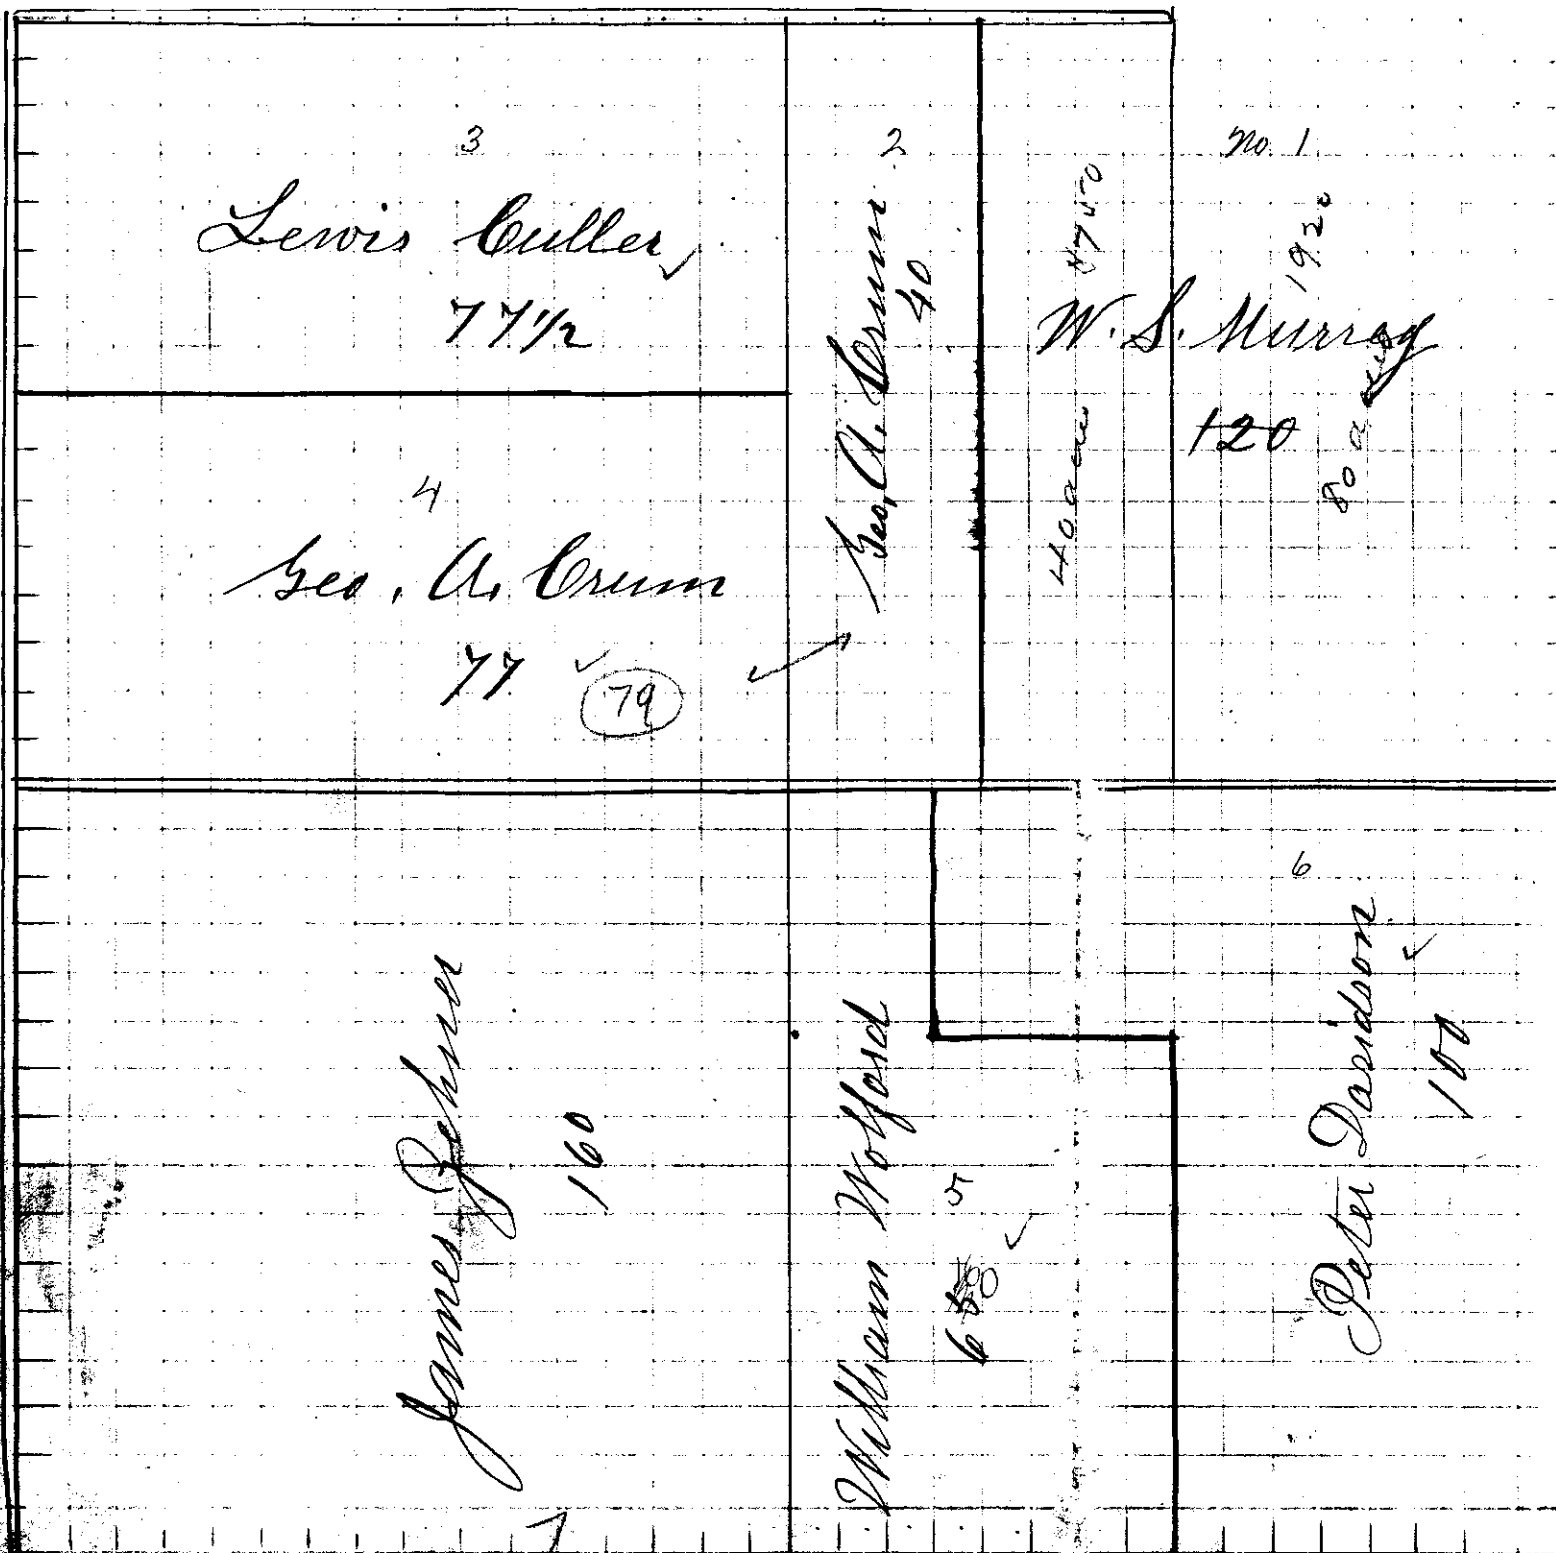 3
Lewis Culler
77 1/2
2
Geo. A. Crum
40
No 1
W. S. Murray
120
1920
40 acres
80 acres
4
Geo. A. Crum
77
79
James Zehner
160
7
William Wolford
5
6
Peter Davidson
100